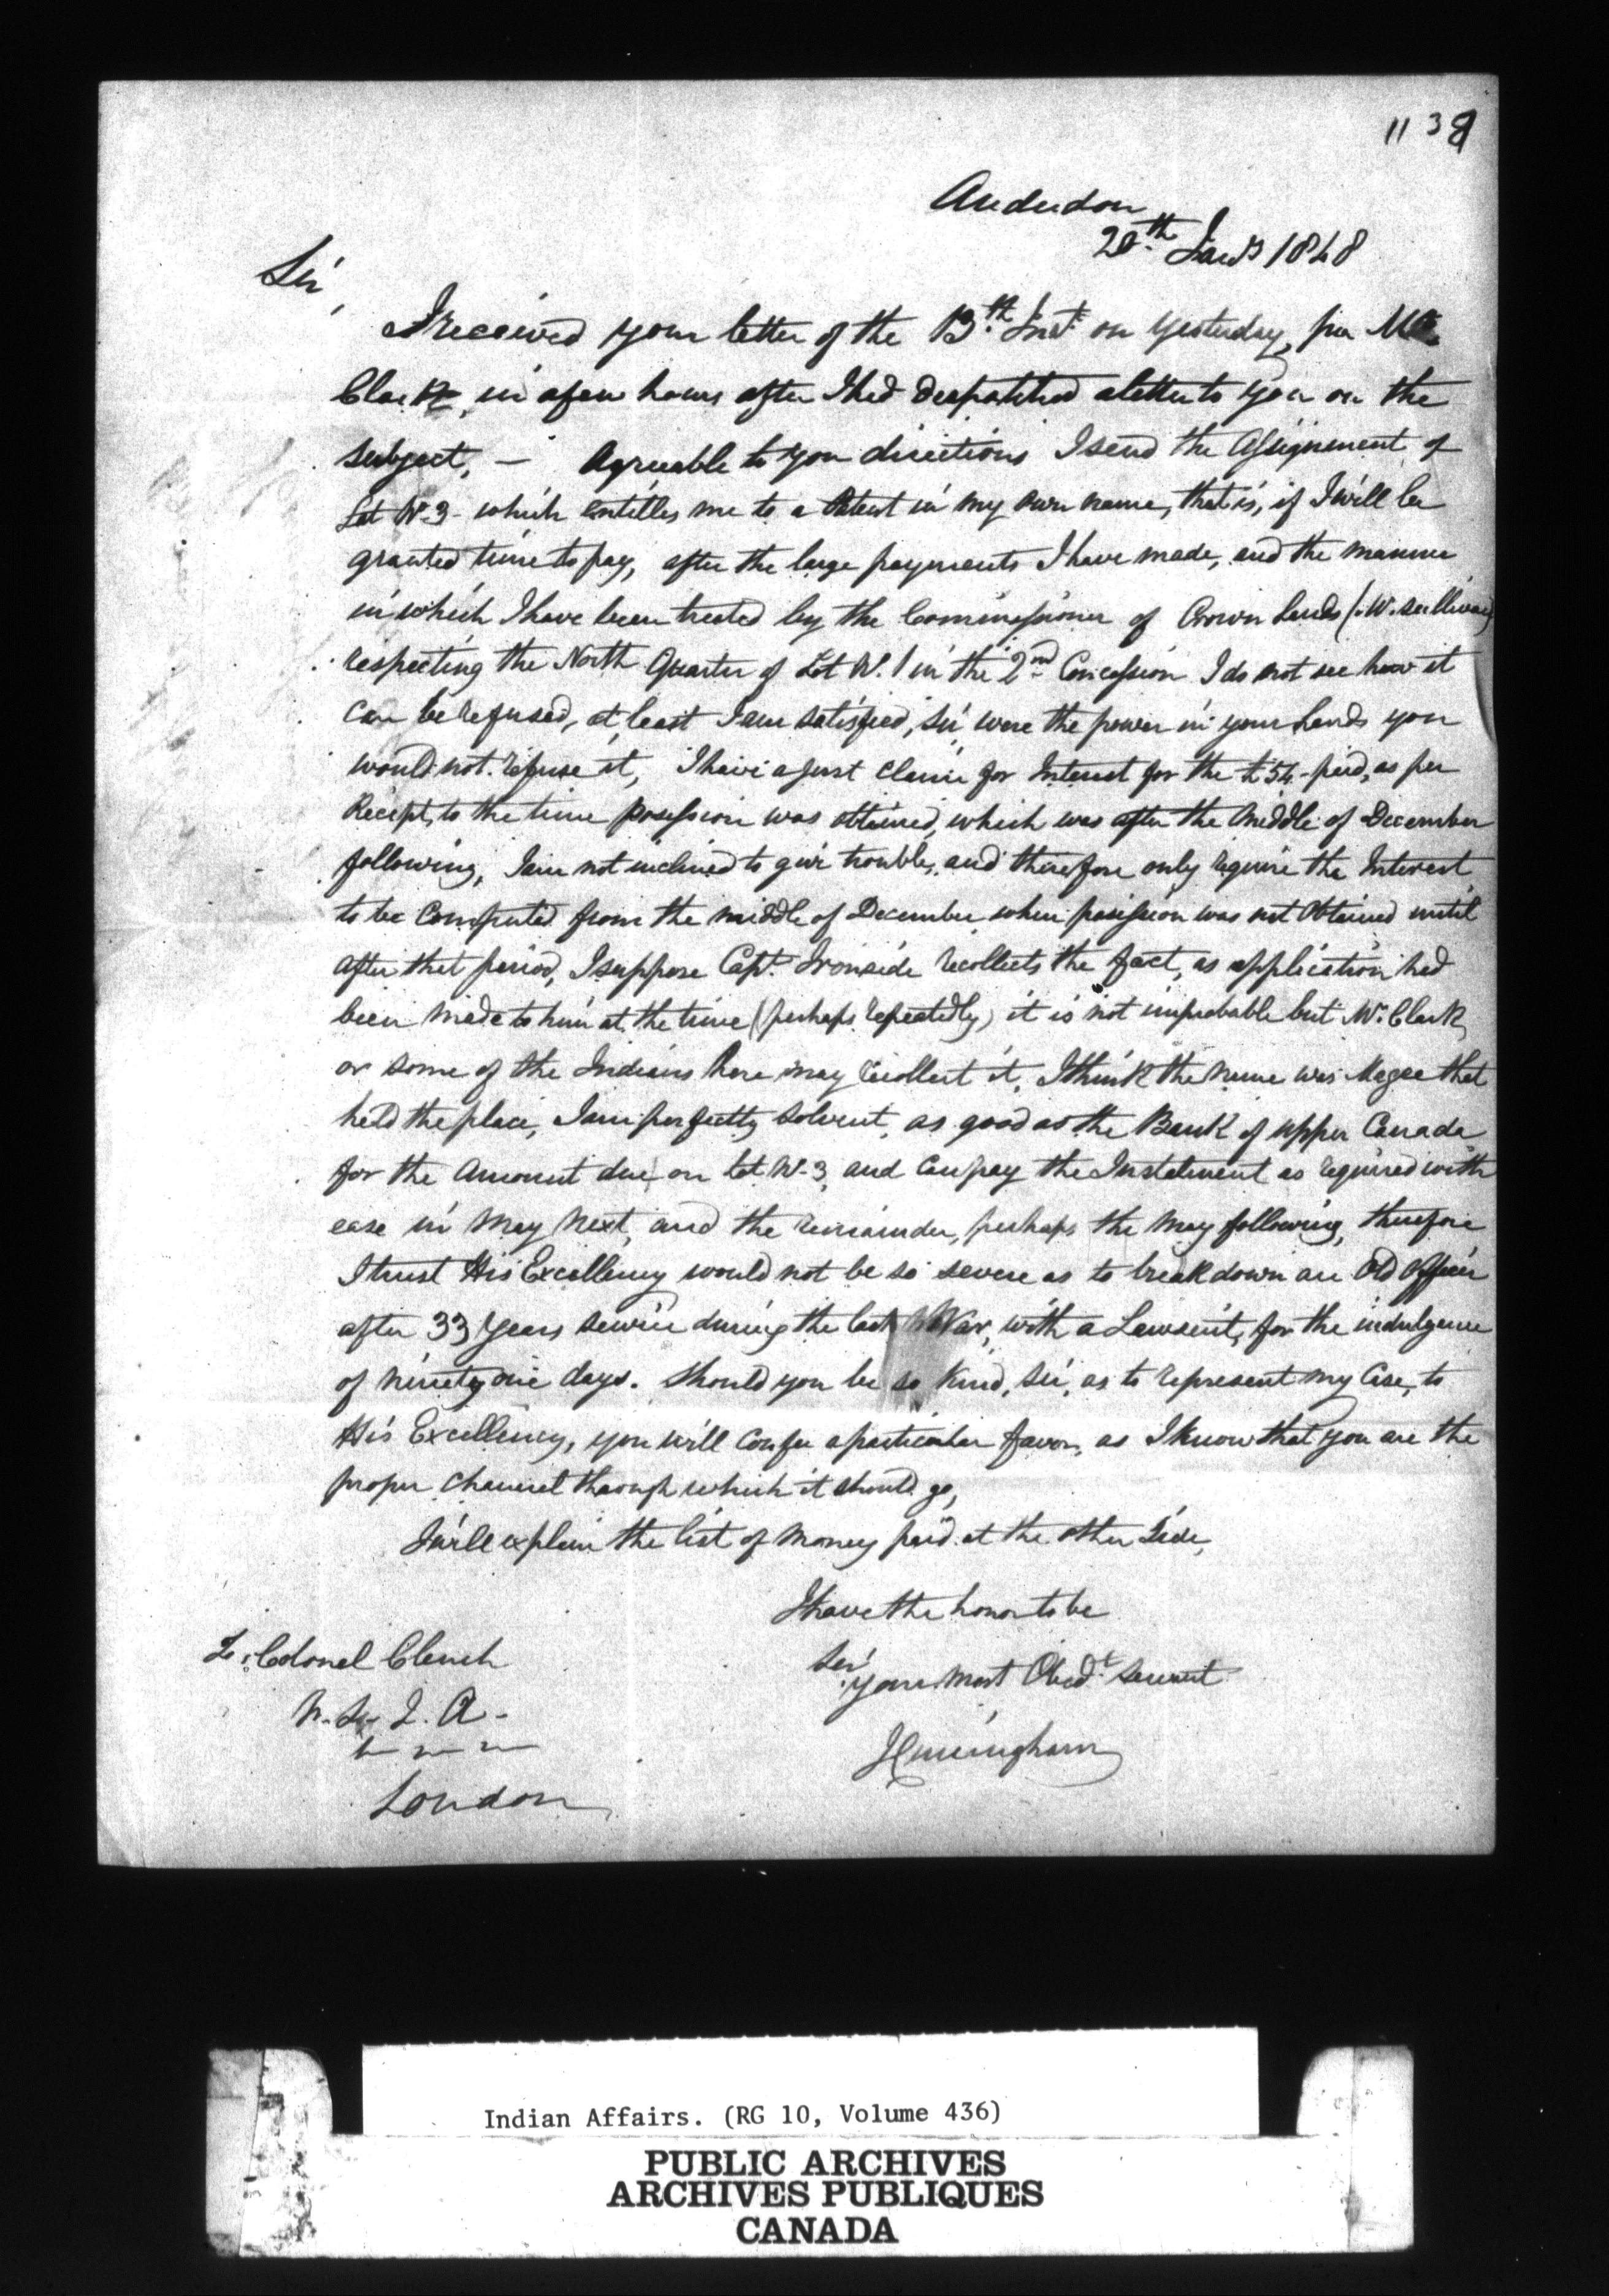 1138
Anderdon
20th Jany 1848
Sir,
I received your letter of the 13th Inst on yesterday, per Mr
Clark, in a few hours after I had despatched a letter to you on the
subject, — Agreeable to your directions I send the Assignment of
Lot No 3 - which entitles me to a Patent in my own name, that is, if I will be
granted time to pay, after the large payments I have made, and the manner
in which I have been treated by the Commissioner of Crown Lands (W. Sullivan)
respecting the North Quarter of Lot No. 1 in the 2nd Concession I do not see how it
can be refused, at least I am satisfied, Sir were the power in your hands you
would not refuse it, I have a just claim for Interest for the £54 - paid, as per
Receipt, to the time possession was obtained, which was after the middle of December
following, I am not inclined to give trouble, and therefore only require the Interest
to be Computed from the middle of December when possession was not Obtained until
after that period, I suppose Capt. Ironside recollects the fact, as application had
been made to him at the time (perhaps repeatedly) it is not improbable but Mr. Clark
or some of the Indians here may recollect it, I think the name was Magee that
held the place, I am perfectly solvent, as good as the Bank of Upper Canada
for the Amount due on Lot No. 3, and can pay the Instalment as required with
ease in May next, and the remainder, perhaps the May following, therefore
I trust His Excellency would not be so severe as to break down an Old Officer
after 33 Years service during the last War, with a Lawsuit, for the indulgence
of ninety one days. Should you be so kind, Sir, as to represent my Case, to
His Excellency, you will confer a particular favor, as I know that you are the
proper channel through which it should go,
I will explain the list of money paid at the other side,
I have the honor to be
Sir
Your most Obedt. Servant
To: Colonel Clench
S. I. A.
London
Indian Affairs. (RG 10, Volume 436)
PUBLIC ARCHIVES
ARCHIVES PUBLIQUES
CANADA